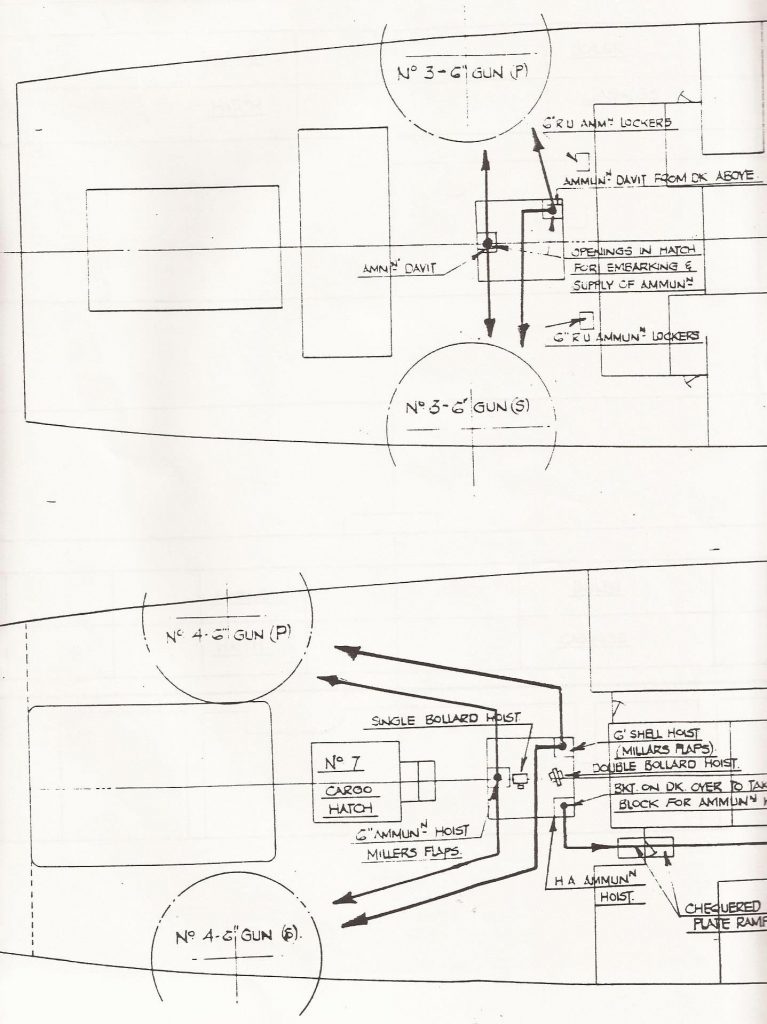 Nº 3-6" GUN (P)
6" R U AMMᴺ LOCKERS
AMMUNᴺ DAVIT FROM DK ABOVE.
AMMᴺ DAVIT
OPENINGS IN HATCH
FOR EMBARKING &
SUPPLY OF AMMUNᴺ
6" R U AMMUNᴺ LOCKERS
Nº 3-6" GUN (S)
Nº 4-6" GUN (P)
SINGLE BOLLARD HOIST
6" SHELL HOIST
(MILLARS FLAPS).
DOUBLE BOLLARD HOIST.
BKT. ON DK. OVER TO TAK
BLOCK FOR AMMUNᴺ H
Nº 7
CARGO
HATCH
6" AMMUNᴺ HOIST
MILLERS FLAPS.
H A AMMUNᴺ
HOIST.
CHEQUERED
PLATE RAMP
Nº 4-6" GUN (S).